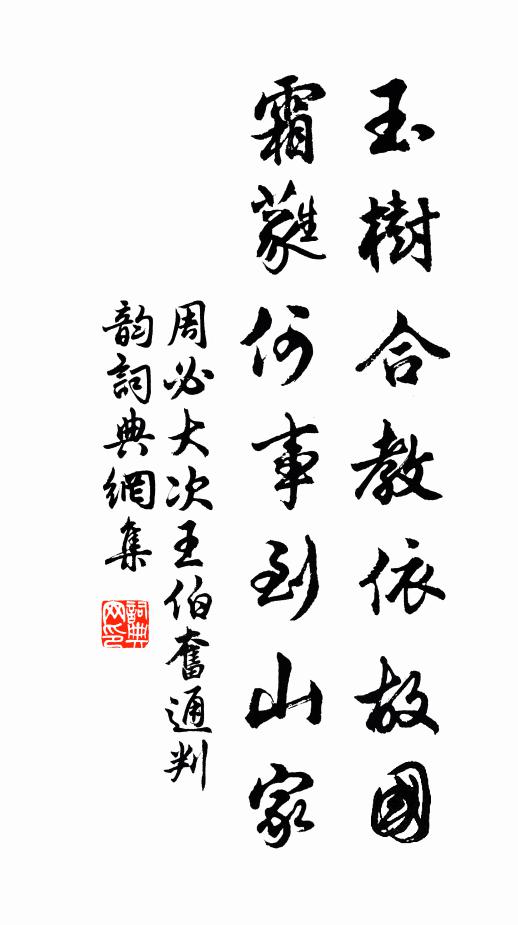 玉樹合教依故國
霜蕤何事到山家
周必大次王伯奮通判
韵詞典網集
詞典网印